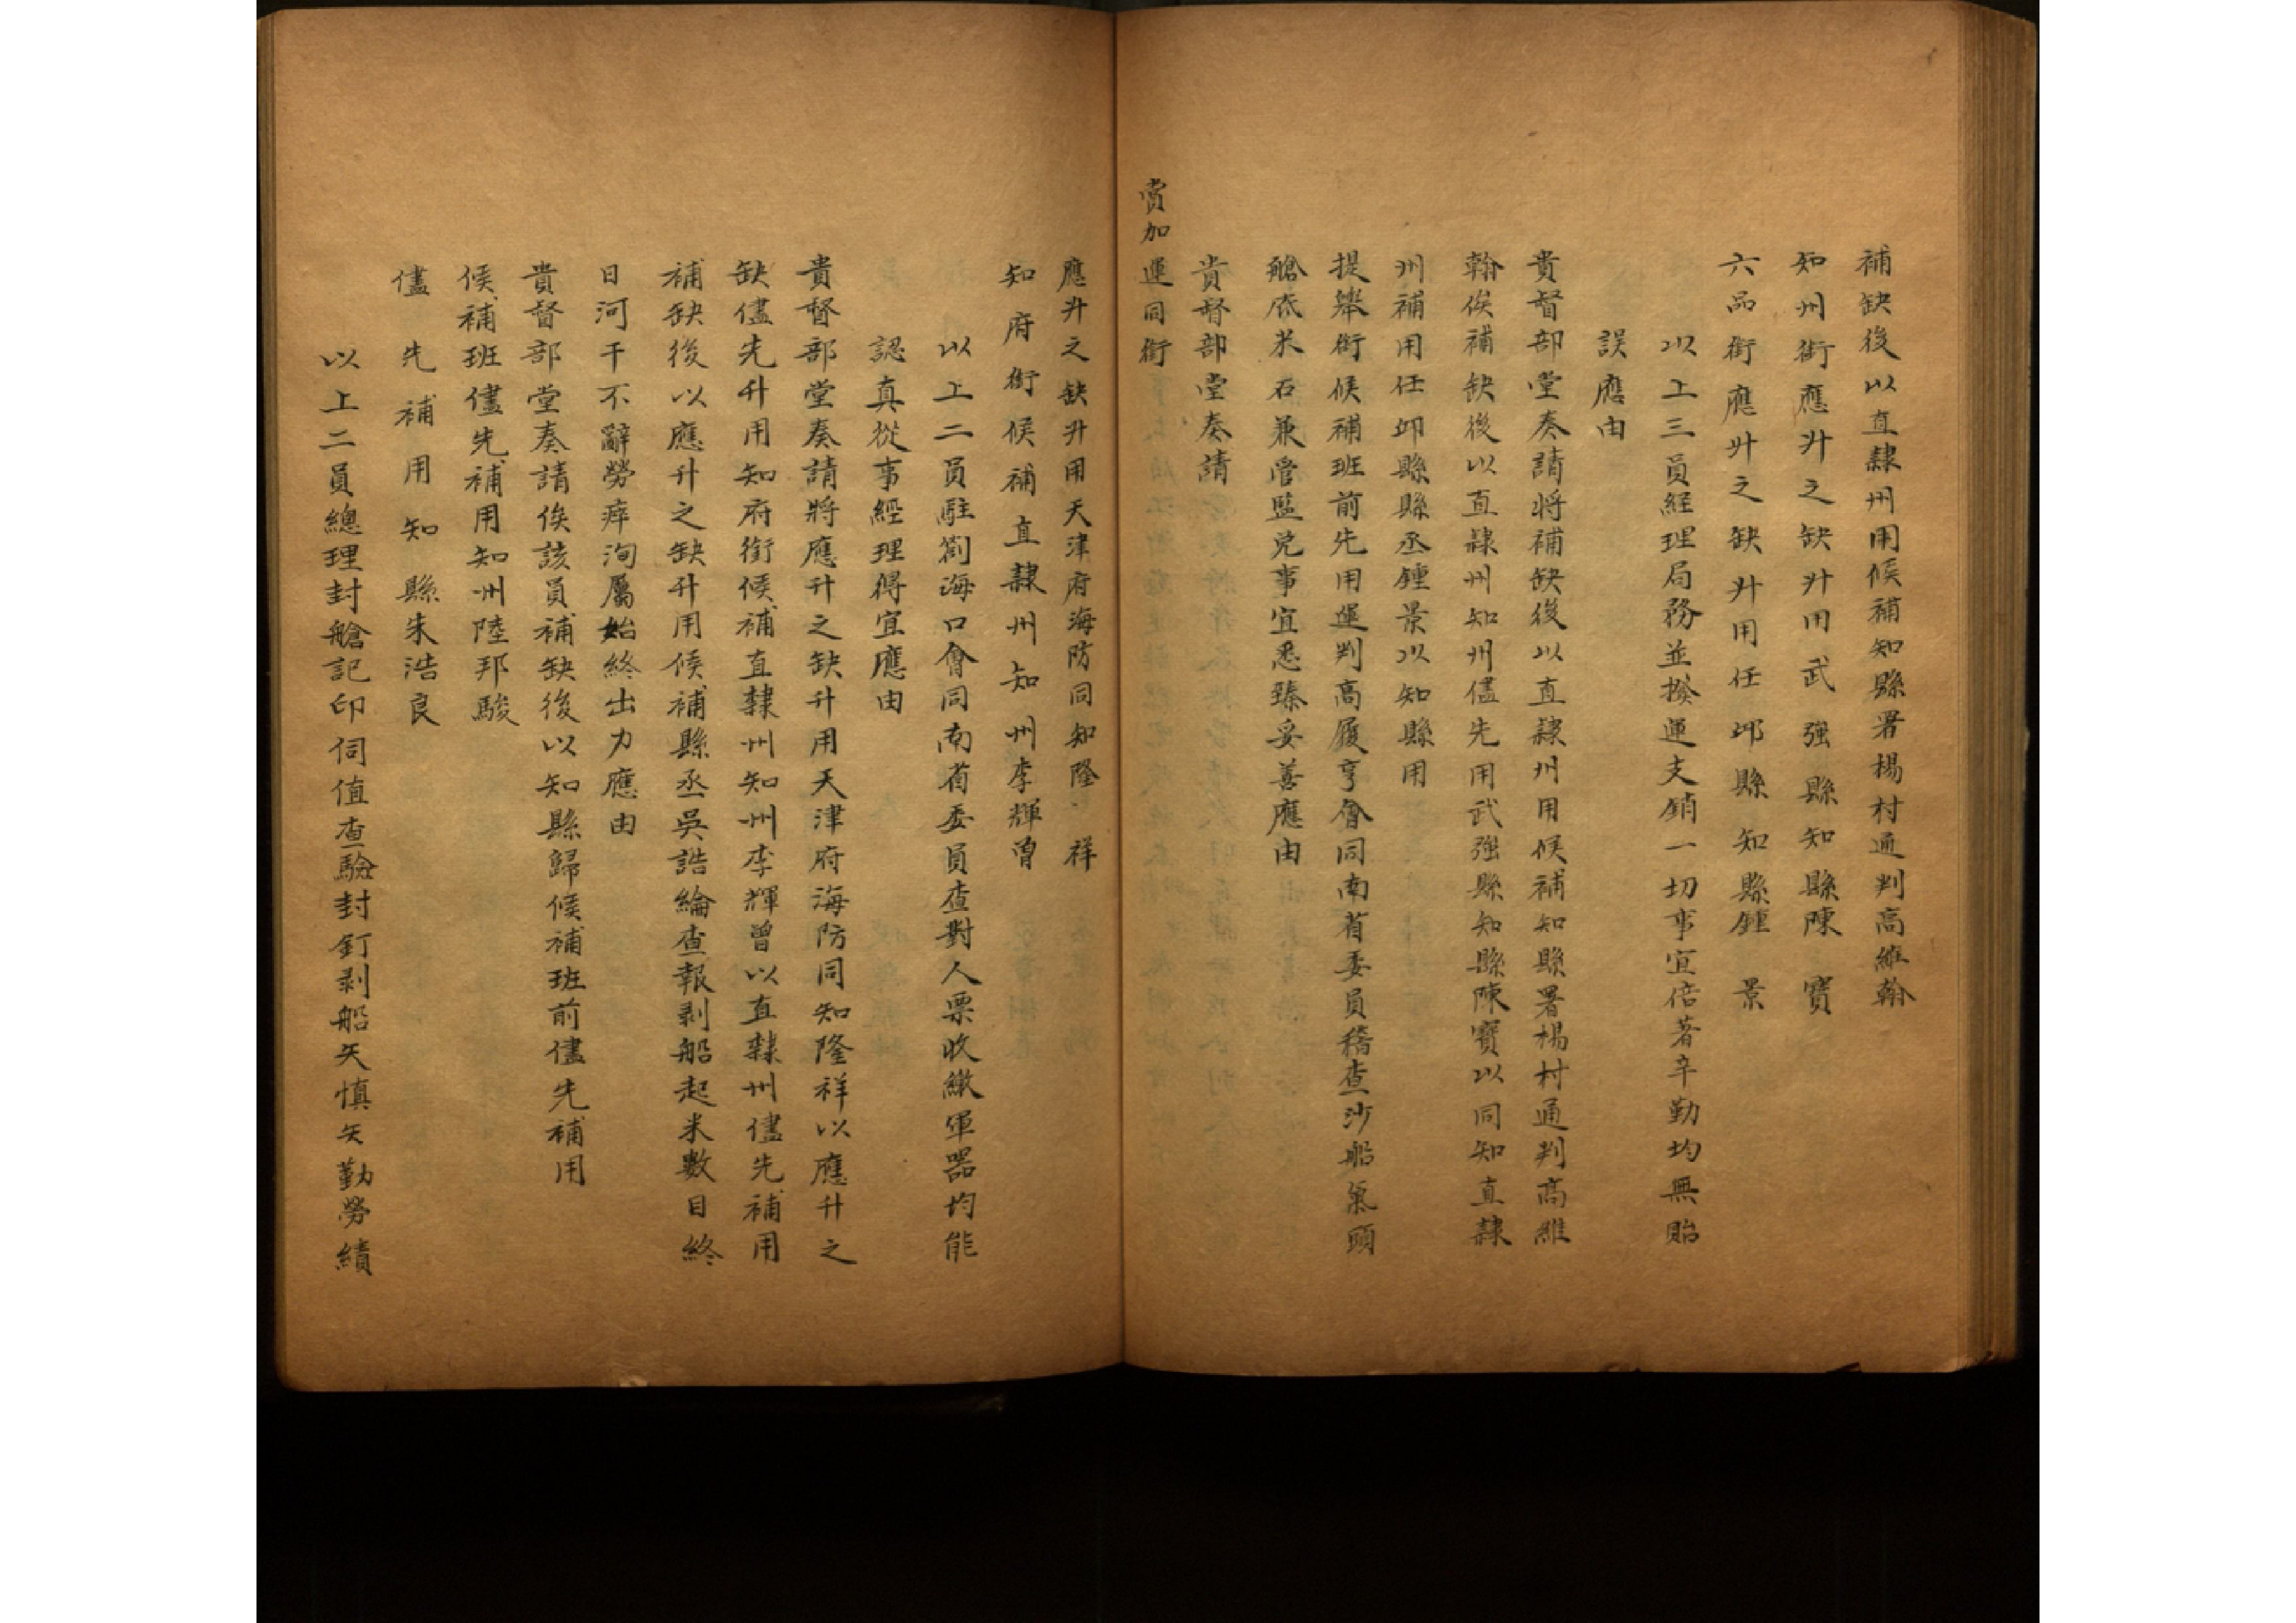 補缺後以直隸州用候補知縣署楊村通判高維翰
知州銜應升之缺升用武強縣知縣陳寶
六品銜應升之缺升用任邱縣知縣鍾景
以上三員経理局務並撥運支銷一切事宜倍著辛勤均無貽
誤應由
貴督部堂奏請將補缺後以直隸州用候補知縣署楊村通判高維
翰俟補缺後以直隸州知州儘先用武強縣知縣陳寶以同知直隸
州補用任邱縣縣丞鍾景以知縣用
提舉銜候補班前先用運判高履亨會同南省委員稽查沙船氣頭
艙底米石兼管監兌事宜悉臻妥善應由
貴督部堂奏請
賞加運同銜
應升之缺升用天津府海防同知隆祥
知府銜候補直隸州知州李輝曾
以上二員駐劄海口會同南省委員查對人票收繳軍器均能
認真從事經理得宜應由
貴督部堂奏請將應升之缺升用天津府海防同知隆祥以應升之
缺儘先升用知府銜候補直隸州知州李輝曾以直隸州儘先補用
補缺後以應升之缺升用候補縣丞吳誥綸查報剥船起米數目終
日河干不辭勞瘁洵屬始終出力應由
貴督部堂奏請俟該員補缺後以知縣歸候補班前儘先補用
候補班儘先補用知州陸邦駿
儘先補用知縣朱浩良
以上二員總理封艙記印伺值查驗封釘剥船矢慎矢勤勞績